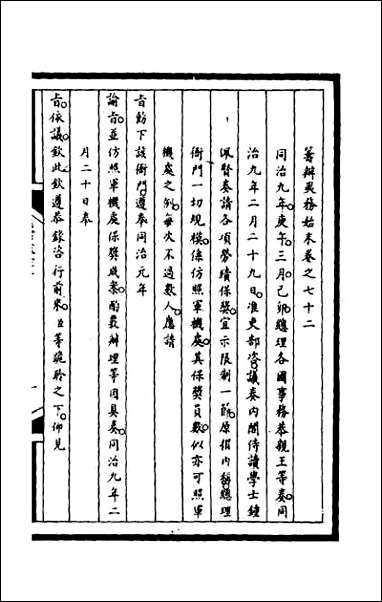 籌辦夷務始末卷之七十二
同治九年庚午三月己卯總理各國事務恭親王等奏同
治九年二月二十九日准吏部咨議奏內閣侍讀學士鍾
佩賢奏請各項勞績保獎宜示限制一節原摺內稱總理
衙門一切規模係仿照軍機處其保獎員數似亦可照軍
機處之例每次不過數人應請
旨飭下該衙門遵奉同治元年
諭旨並仿照軍機處保獎成案酌覈辦理等因具奏同治九年二
月二十日奉
旨依議欽此欽遵恭錄咨行前來臣等跪聆之下仰見